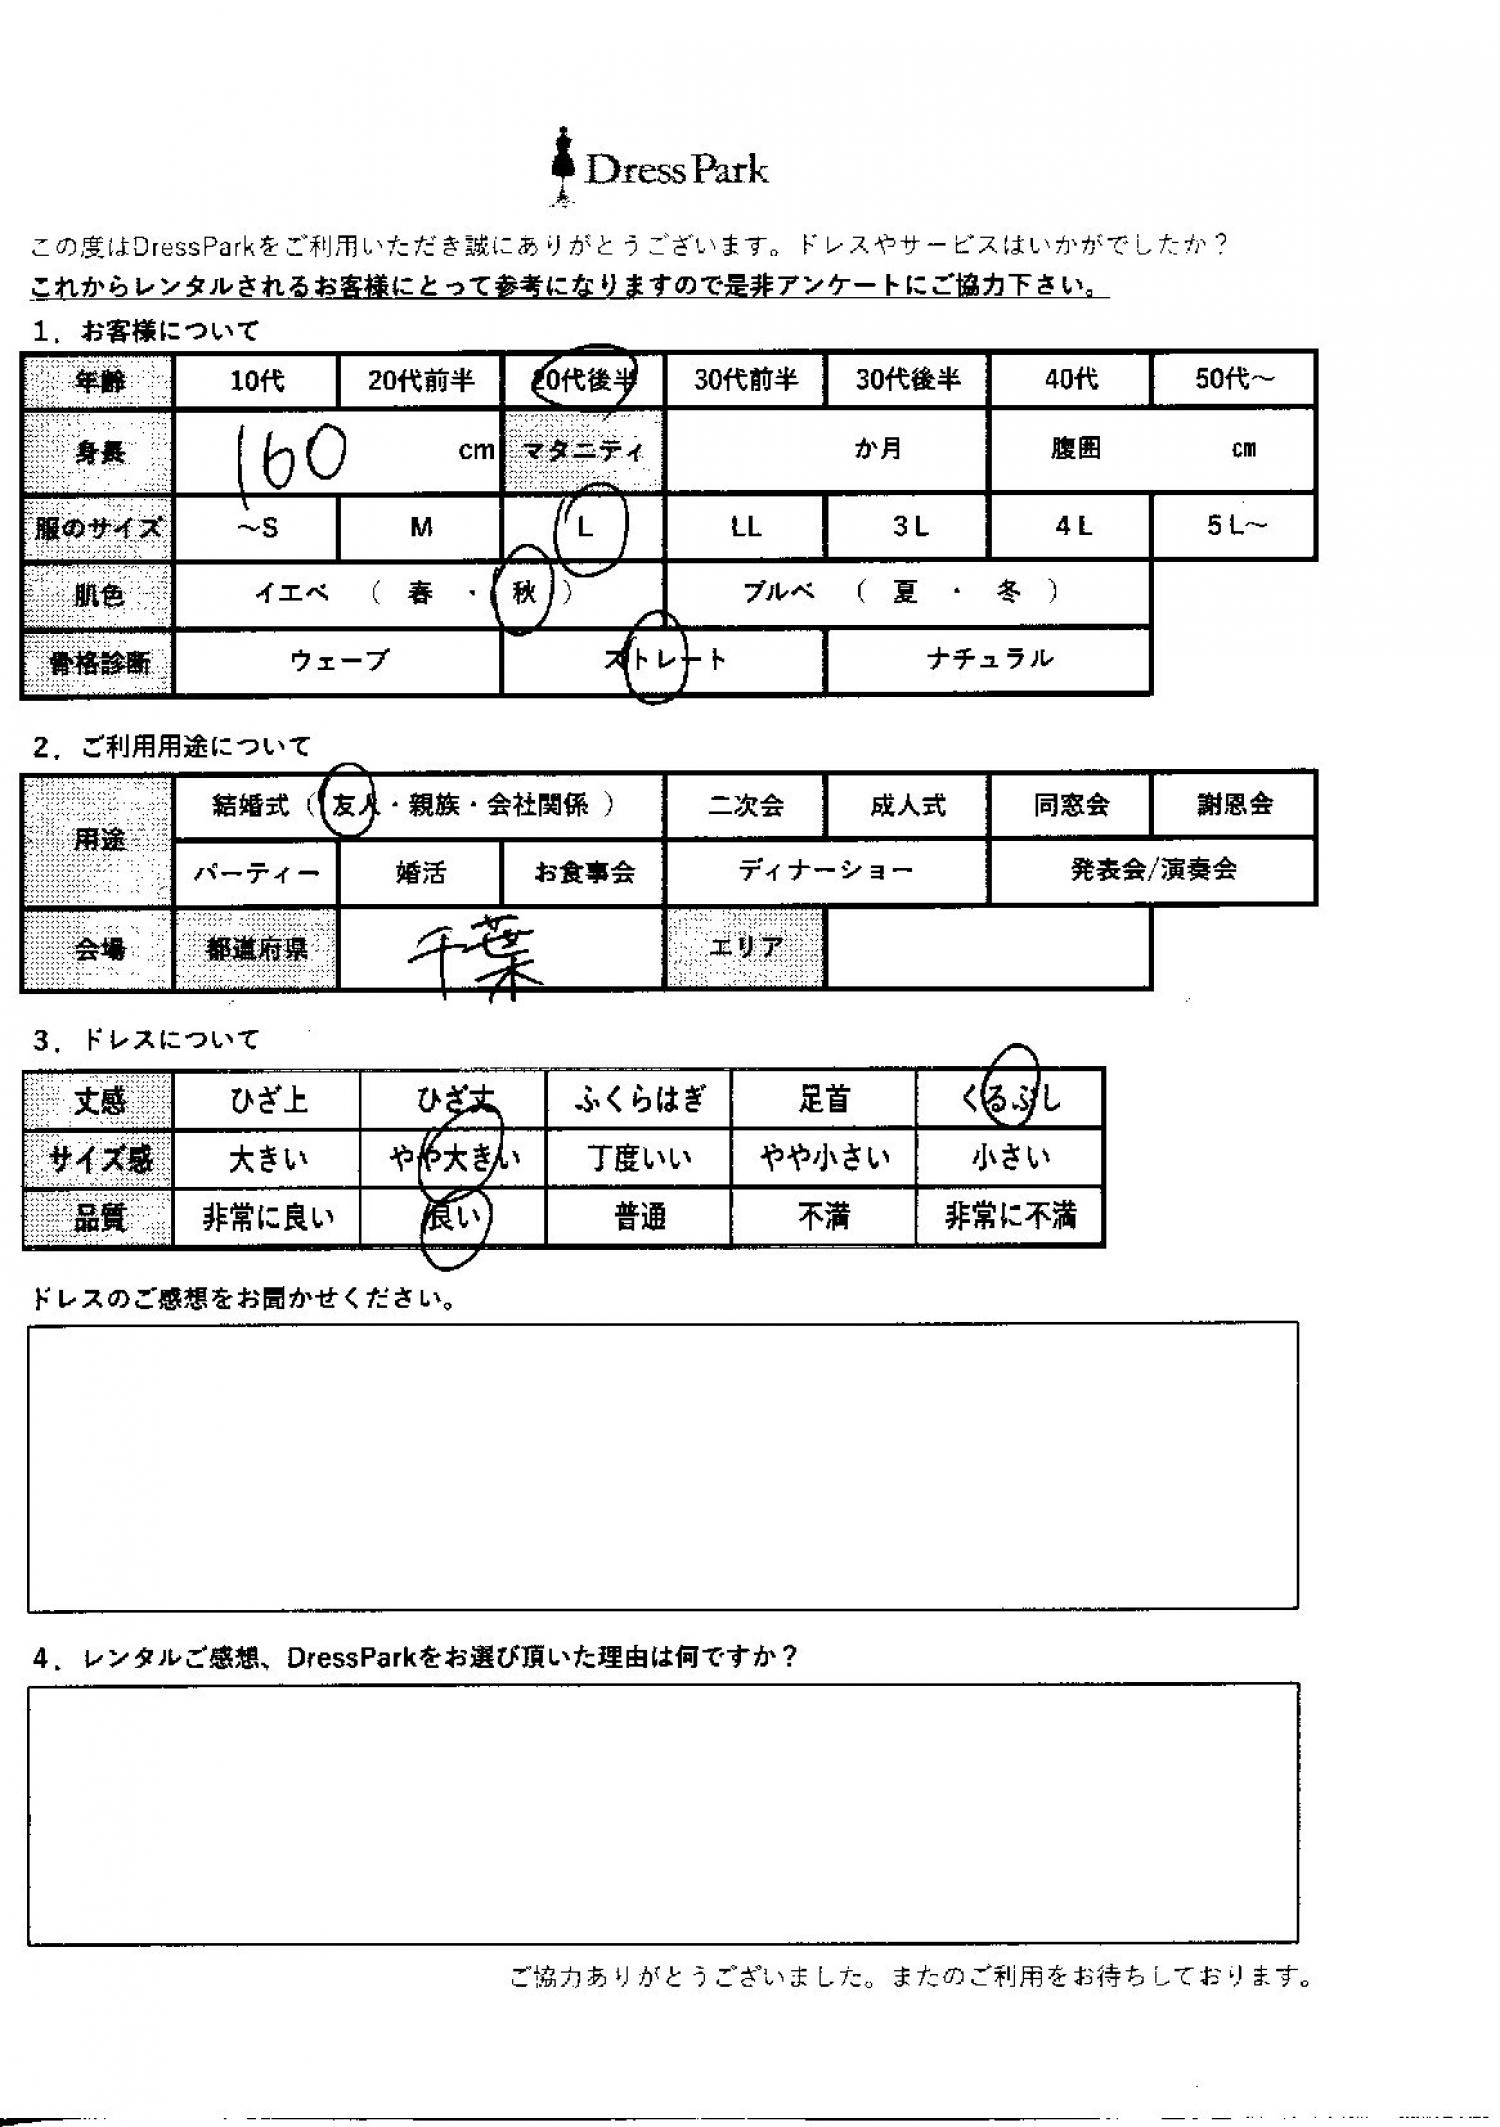 Dress Park
この度はDressParkをご利用いただき誠にありがとうございます。ドレスやサービスはいかがでしたか？
これからレンタルされるお客様にとって参考になりますので是非アンケートにご協力下さい。
1．お客様について
年齢 10代 20代前半 20代後半 30代前半 30代後半 40代 50代～
身長 160 cm マタニティ か月 腹囲 cm
服のサイズ ～S M L LL 3L 4L 5L～
肌色 イエベ （ 春 ・ 秋 ） ブルベ （ 夏 ・ 冬 ）
骨格診断 ウェーブ ストレート ナチュラル
2．ご利用用途について
用途 結婚式（ 友人・親族・会社関係 ） 二次会 成人式 同窓会 謝恩会
パーティー 婚活 お食事会 ディナーショー 発表会/演奏会
会場 都道府県 千葉 エリア
3．ドレスについて
丈感 ひざ上 ひざ丈 ふくらはぎ 足首 くるぶし
サイズ感 大きい やや大きい 丁度いい やや小さい 小さい
品質 非常に良い 良い 普通 不満 非常に不満
ドレスのご感想をお聞かせください。
4．レンタルご感想、DressParkをお選び頂いた理由は何ですか？
ご協力ありがとうございました。またのご利用をお待ちしております。